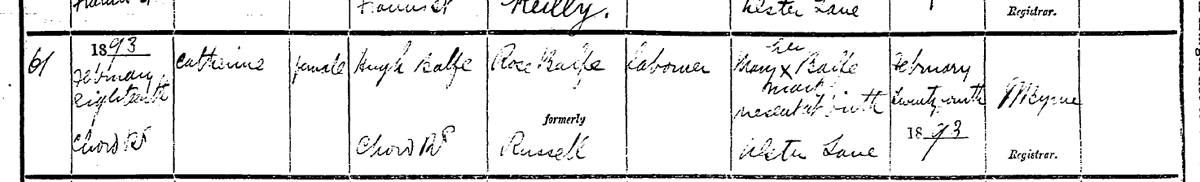 Reilly.
Ulster Lane
Registrar.
61
1893
February
eighteenth
Chord Rd
Catherine
female
Hugh Balfe
Chord Rd
Rose Balfe
formerly
Russell
Laborer
her
Mary X Balfe
mark
present at birth
Ulster Lane
February
1893
Registrar.